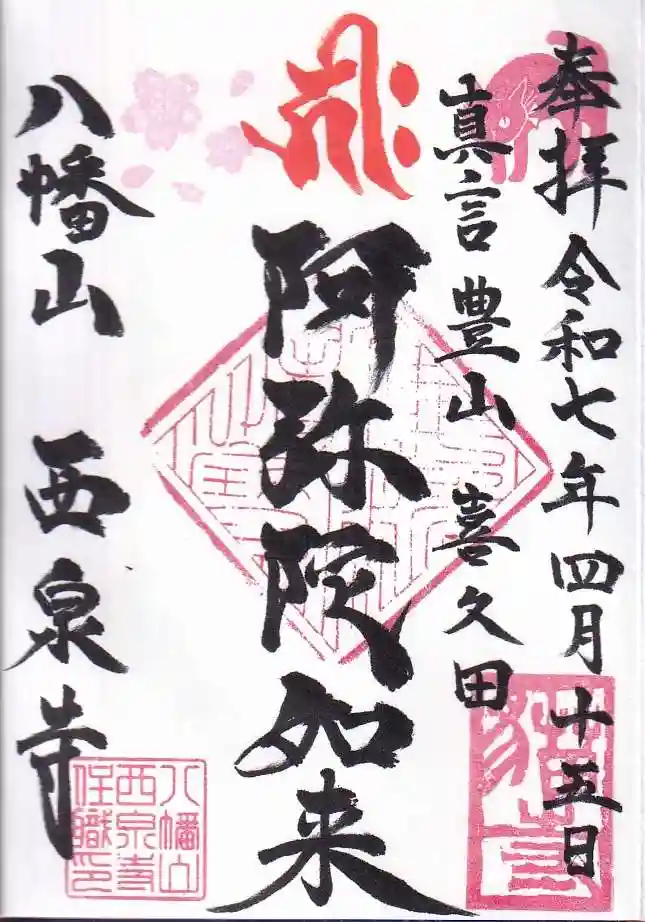 奉拝 令和七年四月十五日
真言 豊山 喜久田
阿弥陀如来
八幡山 西泉寺
八幡山
西泉寺
住職印